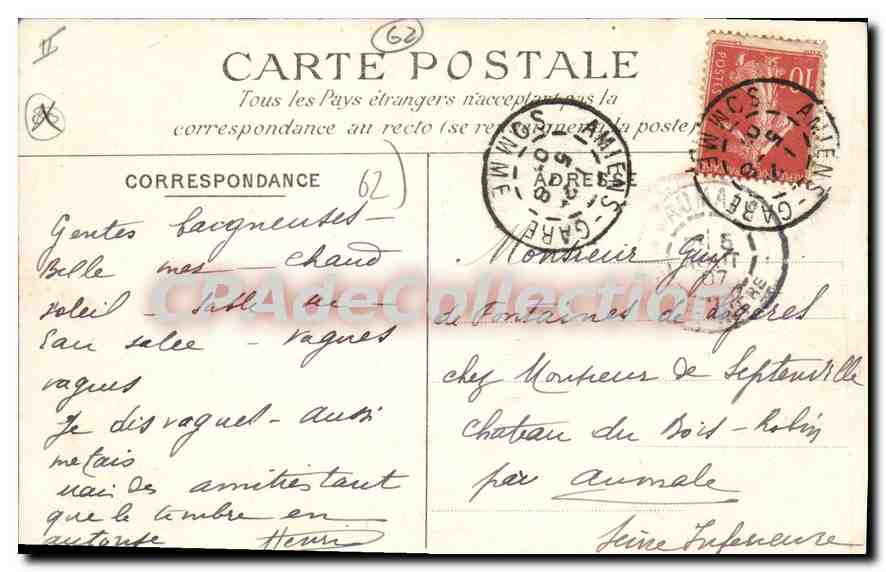 II
62
CARTE POSTALE
Tous les Pays étrangers n'acceptent pas la
correspondance au recto (se renseigner à la poste)
CORRESPONDANCE
62
ADRESSE
AMIENS-GARE
SOMME
AMIENS-GARE
SOMME
POSTES
10
AUMALE
Gentes baigneuses –
Belle mer – Chaud
soleil – sable
Eau salée – vagues
vagues
Je dis vagues – aussi
des amitiés tant
que le timbre en
autorise Henri
Monsieur Guy
de Fontaines de Logères
chez Monsieur de Septenville
Chateau du Bois-Robin
par Aumale
Seine Inférieure
CPAdeCollection